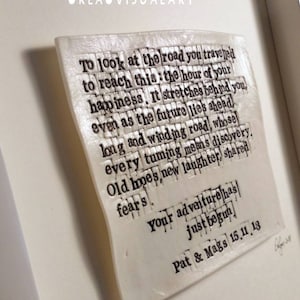 CREAOVISUALART
To look at the road you traveled
to reach this: the hour of your
happiness. It stretches behind you,
even as the future lies ahead.
long and winding road, whose
every turning means discovery.
Old hopes, new laughter, shared
fears.
Your adventure has
just begun
Pat & Mags 15.11.13